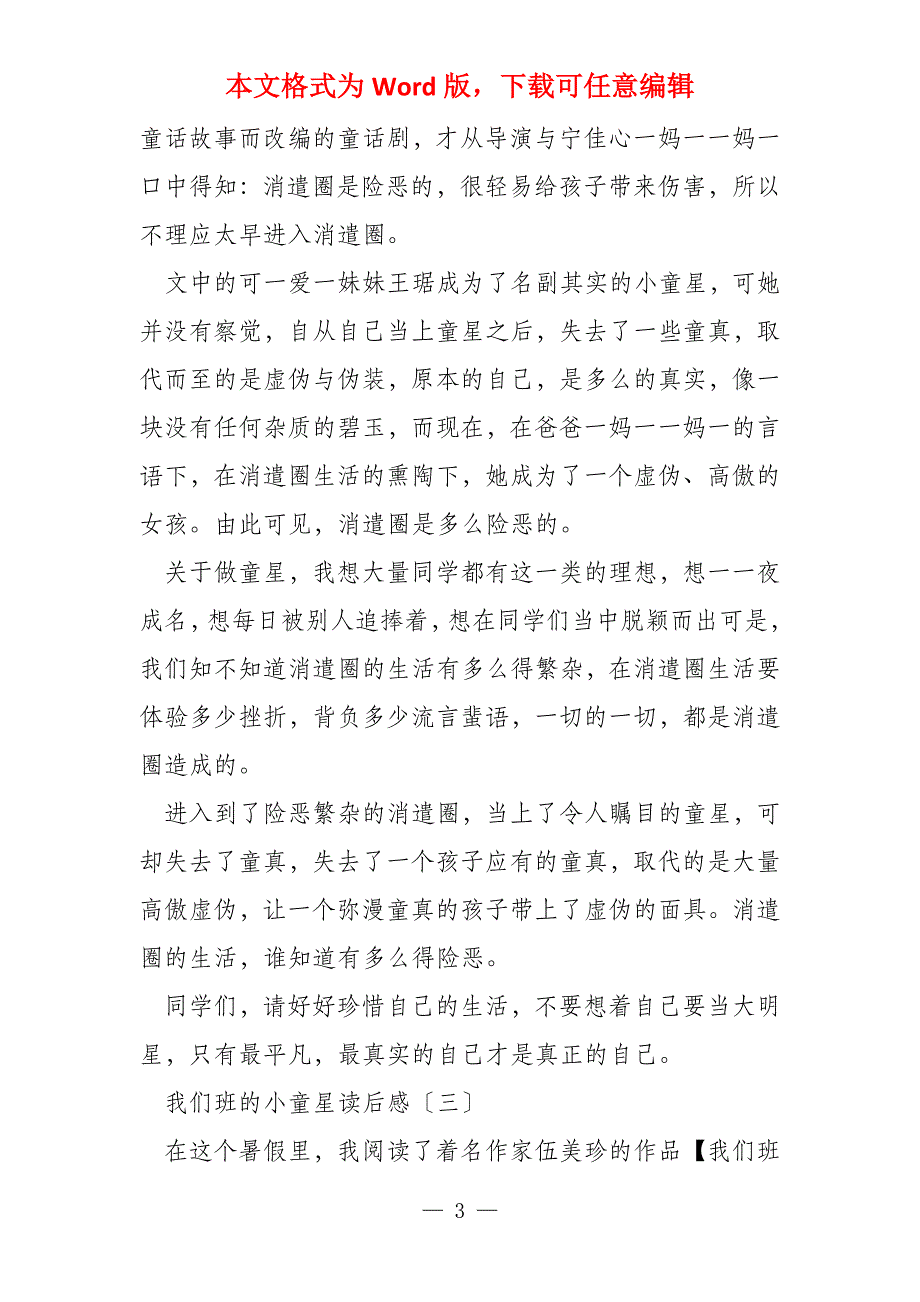 本文格式为 Word 版，下载可任意编辑
童话故事而改编的童话剧，才从导演与宁佳心一妈一一妈一
口中得知：消遣圈是险恶的，很轻易给孩子带来伤害，所以
不理应太早进入消遣圈。
文中的可一爱一妹妹王琚成为了名副其实的小童星，可她
并没有察觉，自从自己当上童星之后，失去了一些童真，取
代而至的是虚伪与伪装，原本的自己，是多么的真实，像一
块没有任何杂质的碧玉，而现在，在爸爸一妈一一妈一的言
语下，在消遣圈生活的熏陶下，她成为了一个虚伪、高傲的
女孩。由此可见，消遣圈是多么险恶的。
关于做童星，我想大量同学都有这一类的理想，想一一夜
成名，想每日被别人追捧着，想在同学们当中脱颖而出可是，
我们知不知道消遣圈的生活有多么得繁杂，在消遣圈生活要
体验多少挫折，背负多少流言蜚语，一切的一切，都是消遣
圈造成的。
进入到了险恶繁杂的消遣圈，当上了令人瞩目的童星，可
却失去了童真，失去了一个孩子应有的童真，取代的是大量
高傲虚伪，让一个弥漫童真的孩子带上了虚伪的面具。消遣
圈的生活，谁知道有多么得险恶。
同学们，请好好珍惜自己的生活，不要想着自己要当大明
星，只有最平凡，最真实的自己才是真正的自己。
我们班的小童星读后感〔三〕
在这个暑假里，我阅读了着名作家伍美珍的作品【我们班
— 3 —